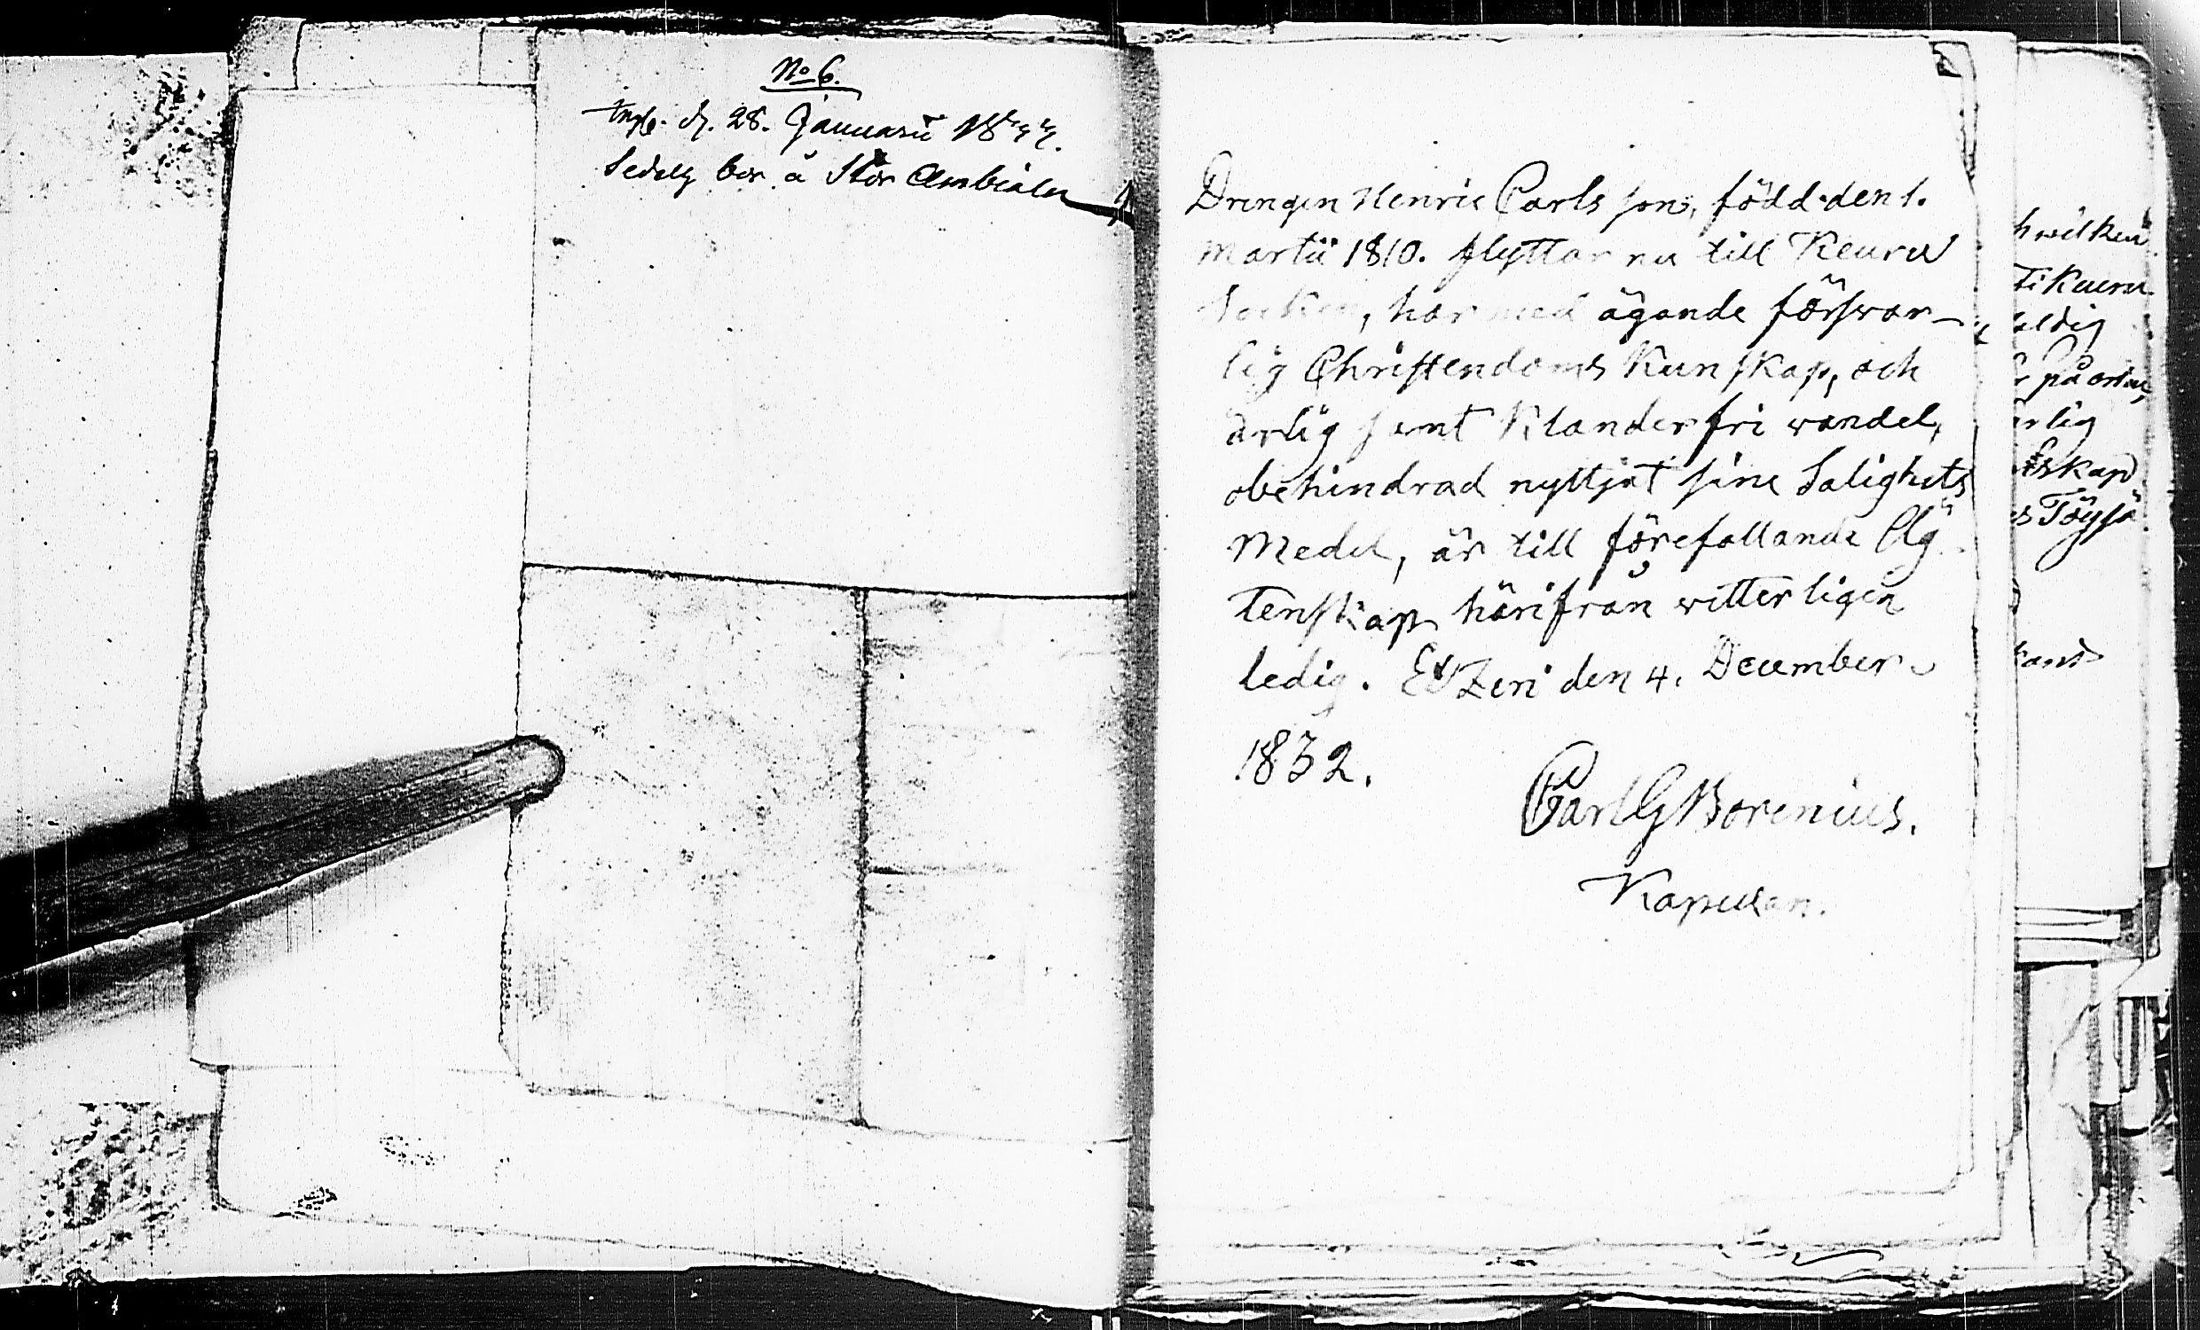 No 6.
d. 28. Januarii 1833.
bor å Stor Ambiala
Drengen Henric Carls son, född den 1.
Martii 1810. flyttar nu till Keuru
Socken, har med ägande förswar-
lig Christendoms Kunskap, och
ärlig samt Klanderfri wandel,
obehindrad nyttjat sine Salighets
Medel, är till förefallande Äg
tenskap härifrån witterligen
ledig. Etzeri den 4. December
1832.
Carl G Borenius.
Kapellan.
hwilken
på orten
rlig
skap